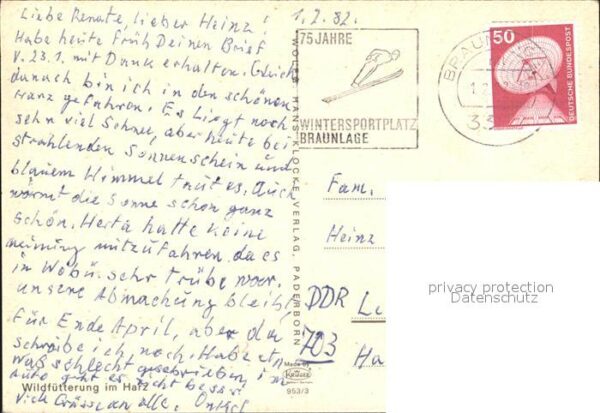 Liebe Renate, lieber Heinz!
Habe heute früh Deinen Brief
v. 23.1. mit Dank erhalten. Gleich
danach bin ich in den schönen
Harz gefahren. Es liegt noch
sehr viel Schnee, aber heute bei
strahlenden Sonnenschein und
blauem Himmel taut es. Auch
wärmt die Sonne schon ganz
schön. Herta hatte keine
meinung mitzufahren, da es
in Wobü. sehr trübe war.
unsere Abmachung bleibt
für Ende April, aber da
schreibe ich noch. Habe etw
was schlecht geschrieben, im
Auto geht es nicht besser
Viele Grüsse an alle. Onkel
Wildfütterung im Harz
1.2.82.
75 JAHRE
WINTERSPORTPLATZ
BRAUNLAGE
BRAUN
1.2
33
50
DEUTSCHE BUNDESPOST
HANS KLOCKE VERLAG, PADERBORN
Fam.
Heinz
DDR Le
703 Ha
privacy protection
Datenschutz
Made by
KRÜGER
953/3